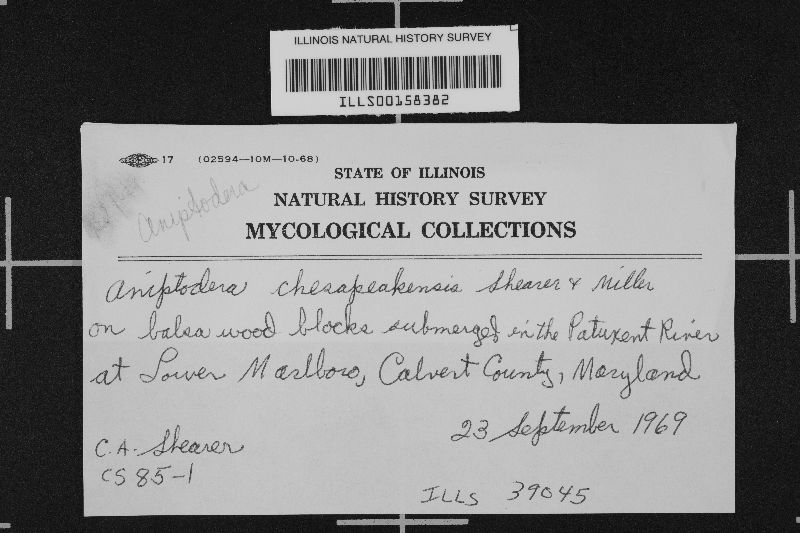 ILLINOIS NATURAL HISTORY SURVEY
ILLS00158382
17 (02594—10M—10-68)
STATE OF ILLINOIS
NATURAL HISTORY SURVEY
MYCOLOGICAL COLLECTIONS
Aniptodera
Aniptodera chesapeakensis Shearer & Miller
on balsa wood blocks submerged in the Patuxent River
at Lower Marlboro, Calvert County, Maryland
23 September 1969
C.A. Shearer
CS 85-1
ILLS 39045